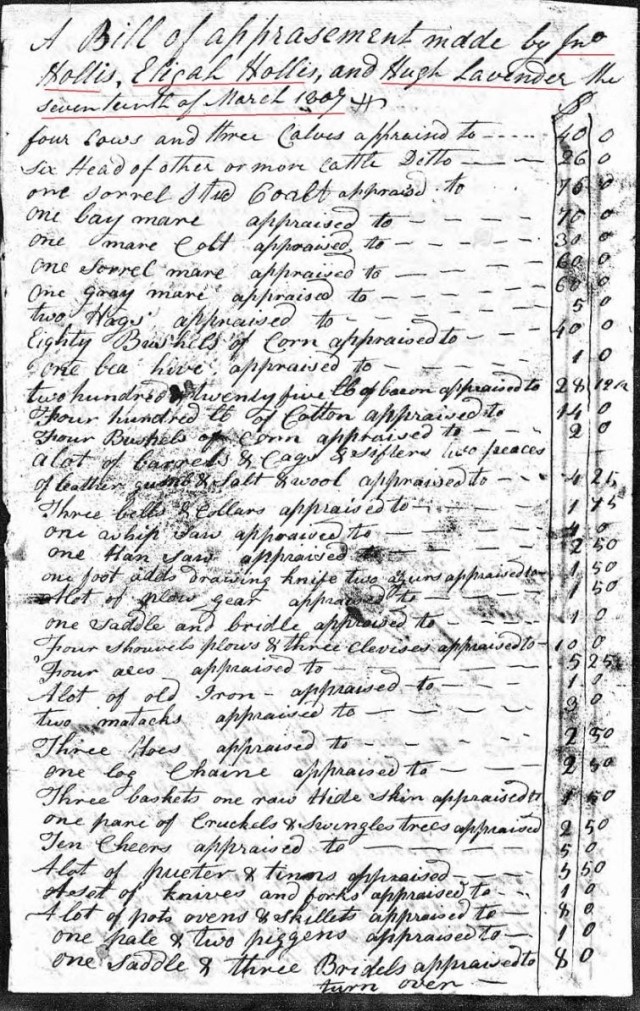 A Bill of apprasement made by Jno
Hollis, Eligah Hollis, and Hugh Lavender the
seventeenth of March 1807 $
four Cows and three Calves appraised to 40 0
six Head of other or mor Cattle Ditto 26 0
one Sorrel Stud Coalt appraised to 75 0
one bay mare appraised to 70 0
one mare Colt appraised to 30 0
one Sorrel mare appraised to 60 0
one gray mare appraised to 60 0
two Hogs appraised to 5 0
Eighty Bushels of Corn appraised to 40 0
one bea hive appraised to 1 0
two hundred & twenty five lb of bacon appraised to 28 12½
Four hundred lb of Cotton appraised to 14 0
Four Bushels of Corn appraised to 2 0
a lot of barrels & Cags & sifters two peaces
of leather & Salt & wool appraised to 4 25
Three bells & Collars appraised to 1 75
one whip Saw appraised to 4 0
one Han Saw appraised to 2 50
one foot adds drawing knife two agurs appraised to 1 50
Alot of plow gear appraised to 1 50
one saddle and bridle appraised to 1 0
Four shouvels plows & three Clevises appraised to 10 0
Four axes appraised to 5 25
Alot of old Iron appraised to 1 0
two matacks appraised to 3 0
Three Hoes appraised to 2 50
one log Chaine appraised to 2 50
Three baskets one raw Hide Skin appraised to 1 50
one pare of & Swingles trees appraised 2 50
Ten Cheers appraised to 5 0
Alot of pueter & appraised 5 50
A set of knives and forks appraised to 1 0
Alot of pots ovens & skillets appraised to 8 0
one pale & two piggens appraised to 1 0
one Saddle & three Bridels appraised to 8 0
turn over